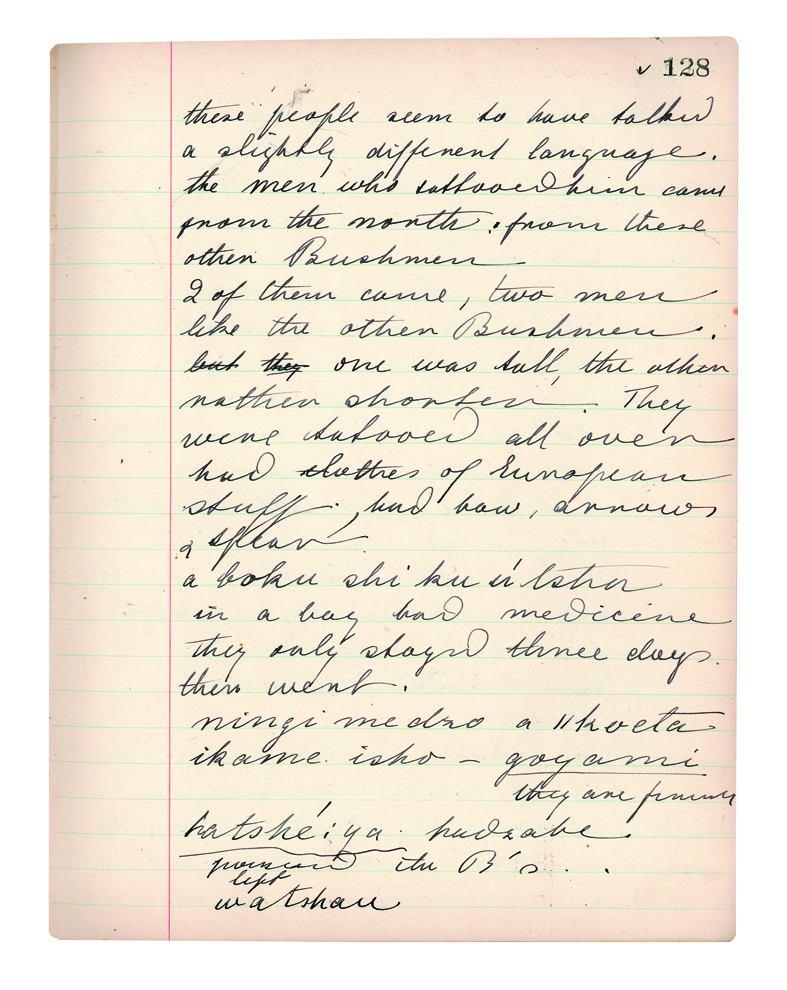 ✓ 128
these people seem to have talked
a slightly different language.
the men who tattooed him came
from the north: from these
other Bushmen
2 of them came, two men
like the other Bushmen.
but they one was tall, the other
rather shorter. They
were tatooed all over
had clothes of European
stuff, had bow, arrows
& spear
a boku shi ku
in a bag had medicine
they only stayed three days
then went.
ningi medzo a ǁkoeta
ikame isho – goyami
they are
hatshé:ya hadzabe.
the B's.
left
watshau